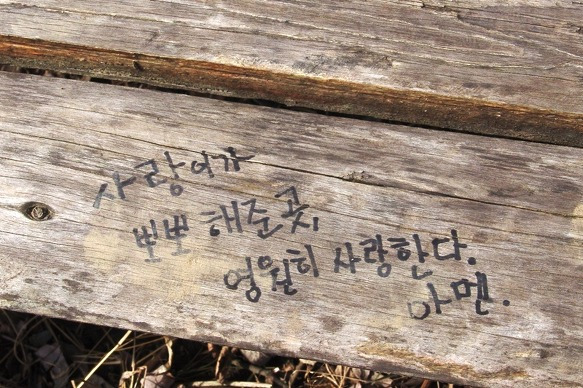 사랑이가
뽀뽀 해준곳,
영원히 사랑한다.
아멘.